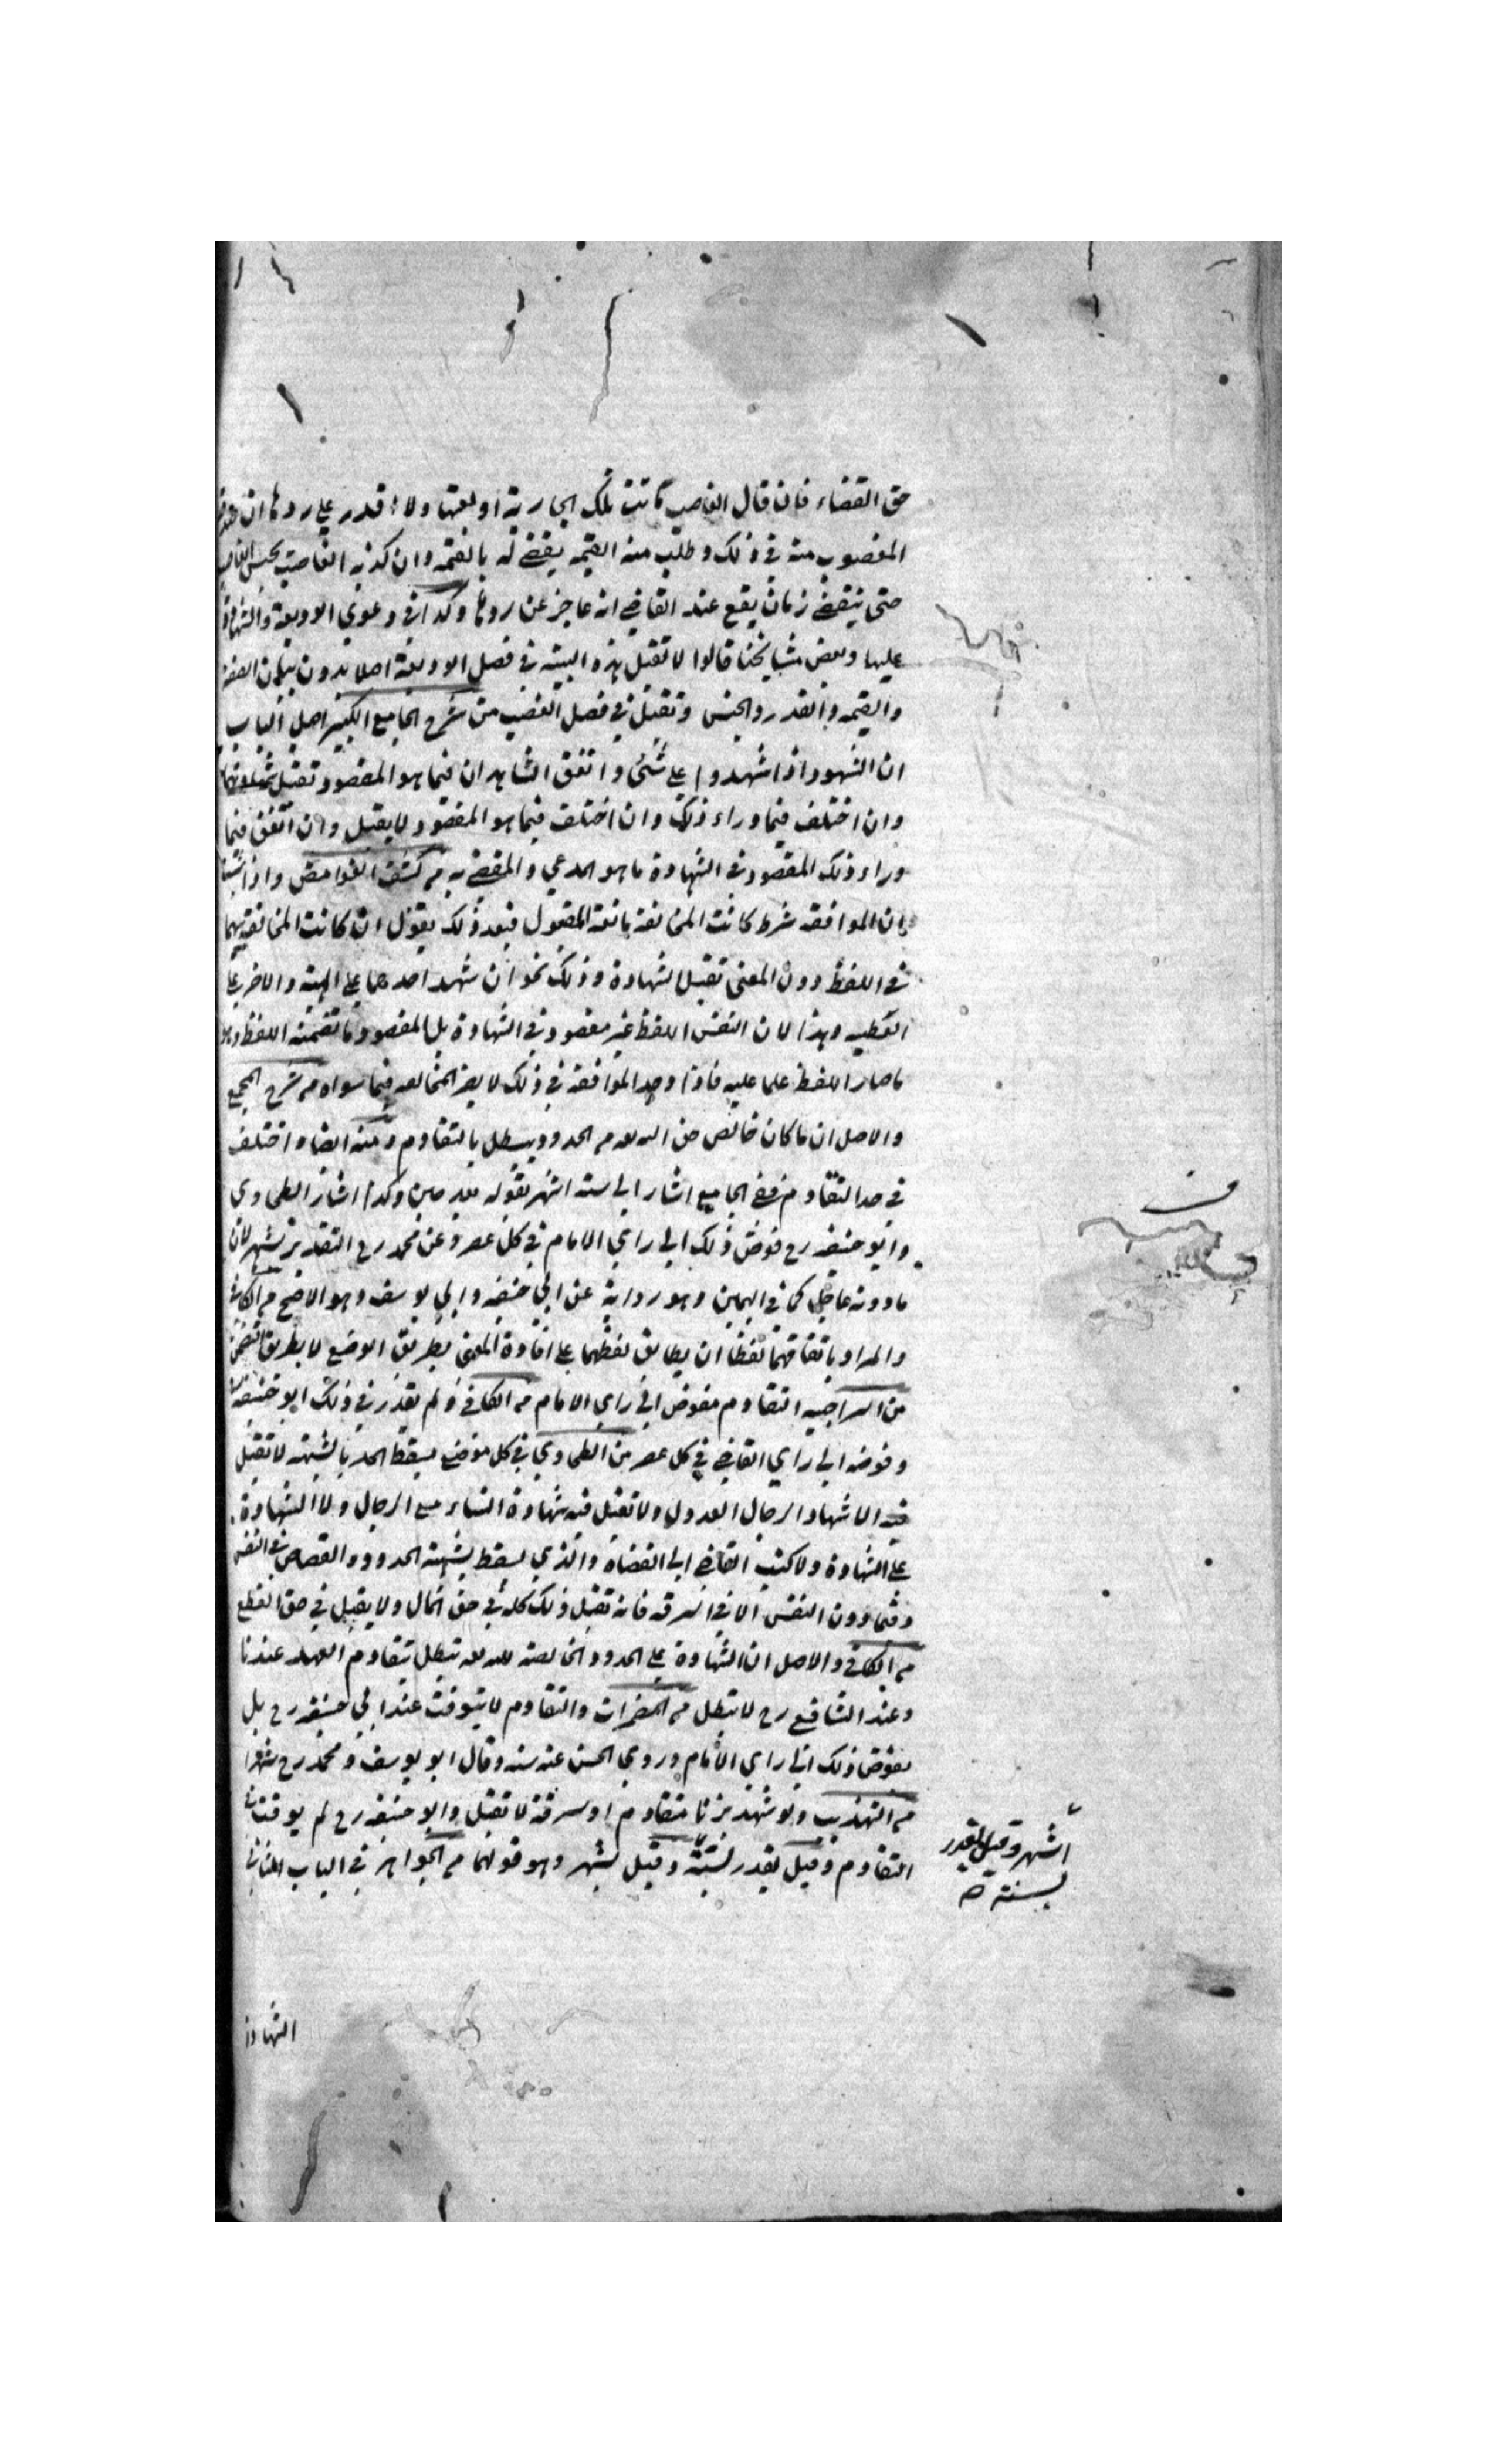 حق القضاء فان قال الغاصب ماتت تلك الجارية او بعتها ولا اقدر على ردها ان صدقه
المغصوب منه في ذلك وطلب منه القيمة يقضى له بالقيمة وان كذبه الغاصب يحبس القاضي
حتى ينقضي زمان يقع عند القاضي انه عاجز عن ردها وكذا في دعوى الوديعة والشهادة
عليها وبعض مشايخنا قالوا لا تقبل هذه البينة في فصل الوديعة اصلا بدون بيان الصفة
والقيمة والقدر والجنس وتقبل في فصل الغصب من شرح الجامع الكبير اصل الباب
ان الشهود اذا شهدوا على شئ واتفق الشاهدان فيما هو المقصود تقبل شهادتهما
وان اختلف فيما وراء ذلك وان اختلف فيما هو المقصود لا يقبل وان اتفق فيما
وراء ذلك المقصود في الشهادة ما هو المدعي والمقضي به من كشف الغوامض واذا ثبت
ان الموافقة شرط كانت المخالفة مانعة القبول فبعد ذلك يقول ان كانت المخالفة بينهما
في اللفظ دون المعنى تقبل الشهادة وذلك نحو ان شهد احدهما على الهبة والاخر على
العطية وهذا لان النفس اللفظ غير مقصود في الشهادة بل المقصود ما تضمنه اللفظ وهو
ما صار اللفظ علما عليه فاذا وجد الموافقة في ذلك لا يضر المخالفة فيما سواه من شرح المجمع
والاصل ان ما كان خالص حق الله تعالى من الحدود يبطل بالتقادم ومنه ايضا واختلف
في حد التقادم ففي الجامع اشار الى ستة اشهر بقوله بعد حين وكذا اشار الطحاوي
وابو حنيفة رح فوض ذلك الى راي الامام في كل عصر وعن محمد رح التقدير بشهر لان
ما دونه عاجل كما في اليمين وهو رواية عن ابي حنيفة وابي يوسف وهو الاصح من الكافي
والمراد باتفاقهما لفظا ان يطابق لفظهما على افادة المعنى بطريق الوضع لا بطريق التضمن
من السراجية التقادم مفوض الى راي الامام من الكافي ولم يقدر في ذلك ابو حنيفة
وفوضه الى راي القاضي في كل عصر من الطحاوي في كل موضع يسقط الحد بالشبهة لا تقبل
فيه الا شهادة الرجال العدول ولا تقبل فيه شهادة النساء مع الرجال ولا الشهادة
على الشهادة ولا كتب القاضي الى القضاة والذي يسقط بشبهة الحدود والقصاص في النفس
وفيما دون النفس الا في السرقة فانه تقبل ذلك كله في حق المال ولا يقبل في حق القطع
من الكافي والاصل ان الشهادة على الحدود الخالصة لله تعالى تبطل بتقادم العهد عندنا
وعند الشافعي رح لا تبطل من المضمرات والتقادم لا يتوقت عند ابي حنيفة رح بل
يفوض ذلك الى راي الامام وروى الحسن عنه سنة وقال ابو يوسف ومحمد رح شهرا
من التهذيب ولو شهد بزنا متقادم او سرقة لا تقبل وابو حنيفة رح لم يوقت في
التقادم وقيل يقدر بستة وقيل بشهر وهو قولهما من الجواهر في الباب الثاني
اشهر وقيل يقدر
بسنة صح
الشهادة